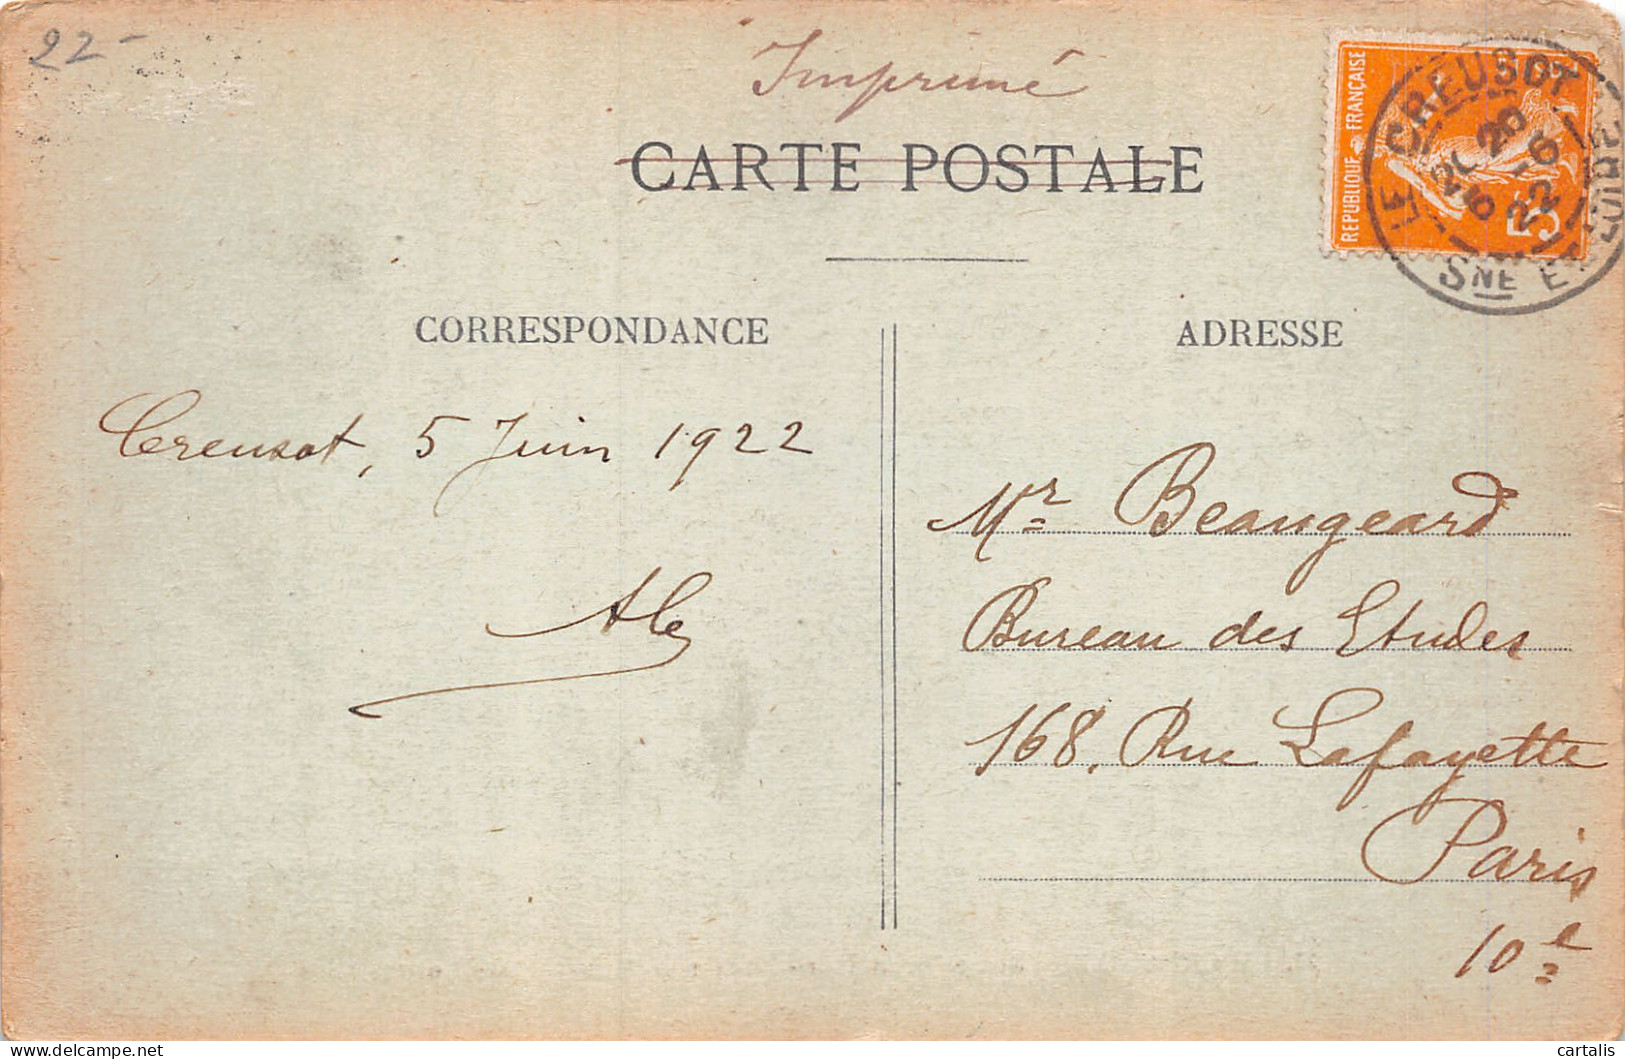 22-
Imprimé
CARTE POSTALE
REPUBLIQUE FRANÇAISE
5
LE CREUSOT
SNE ET LOIRE
20 20
5 - 6
22
CORRESPONDANCE
ADRESSE
Creusot, 5 Juin 1922
Mr Beaugeard
Bureau des Etudes
168, Rue Lafayette
Paris
10e
cartalis